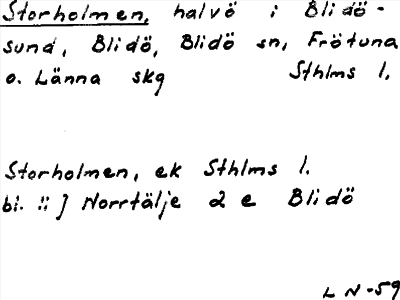 Storholmen, halvö i Blidö-
sund, Blidö, Blidö sn, Frötuna
o. Länna skg Sthlms l.
Storholmen, ek Sthlms l.
bl. :: ] Norrtälje 2 e Blidö
LN-59